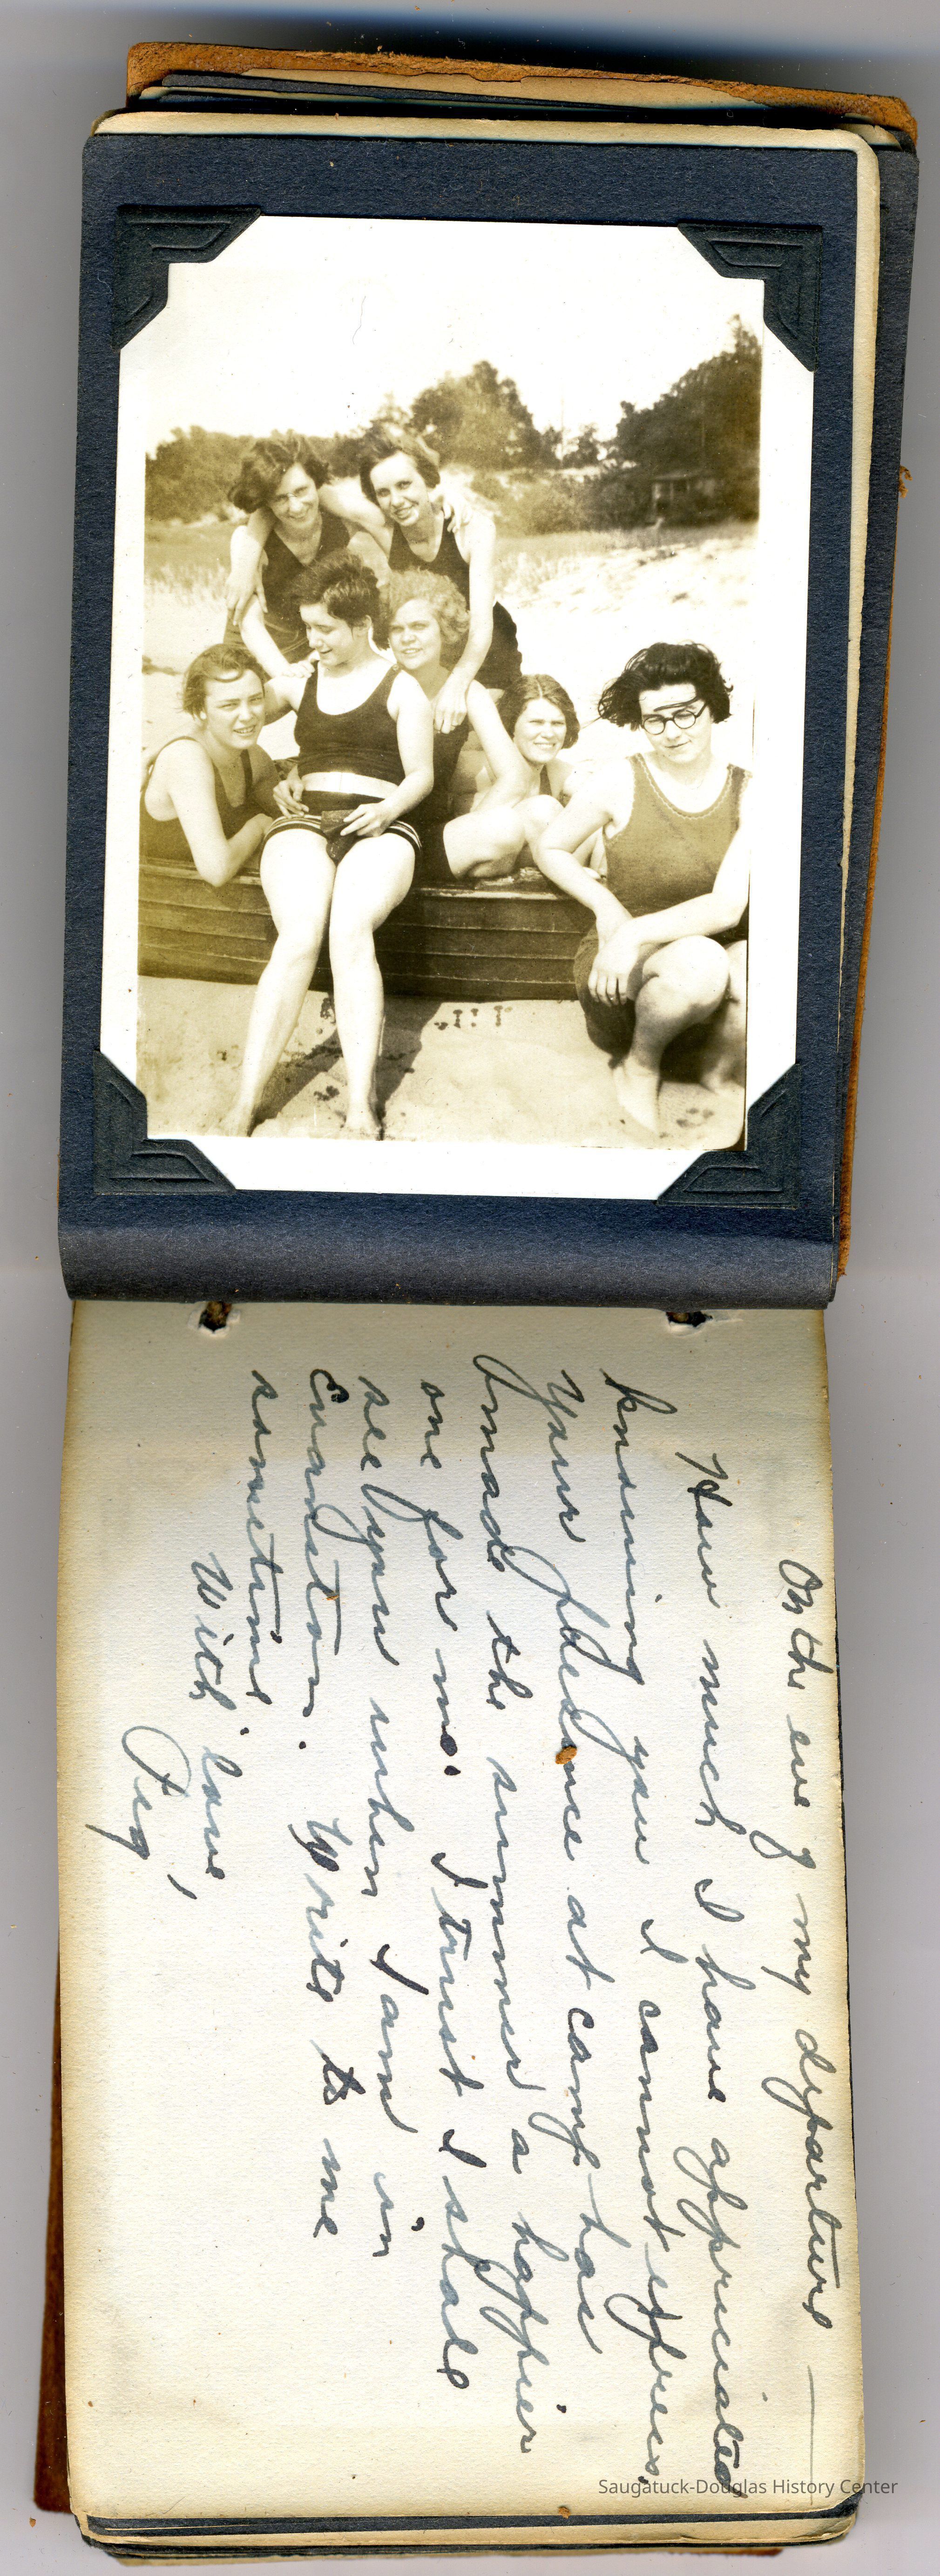 On the eve of my departure —
How much I have appreciated
knowing you I cannot express.
Your presence at camp has
made the summer a happier
one for me. I trust I shall
see you when I am in
Evanston. Write to me
sometime
With love,
Peg,
Saugatuck-Douglas History Center